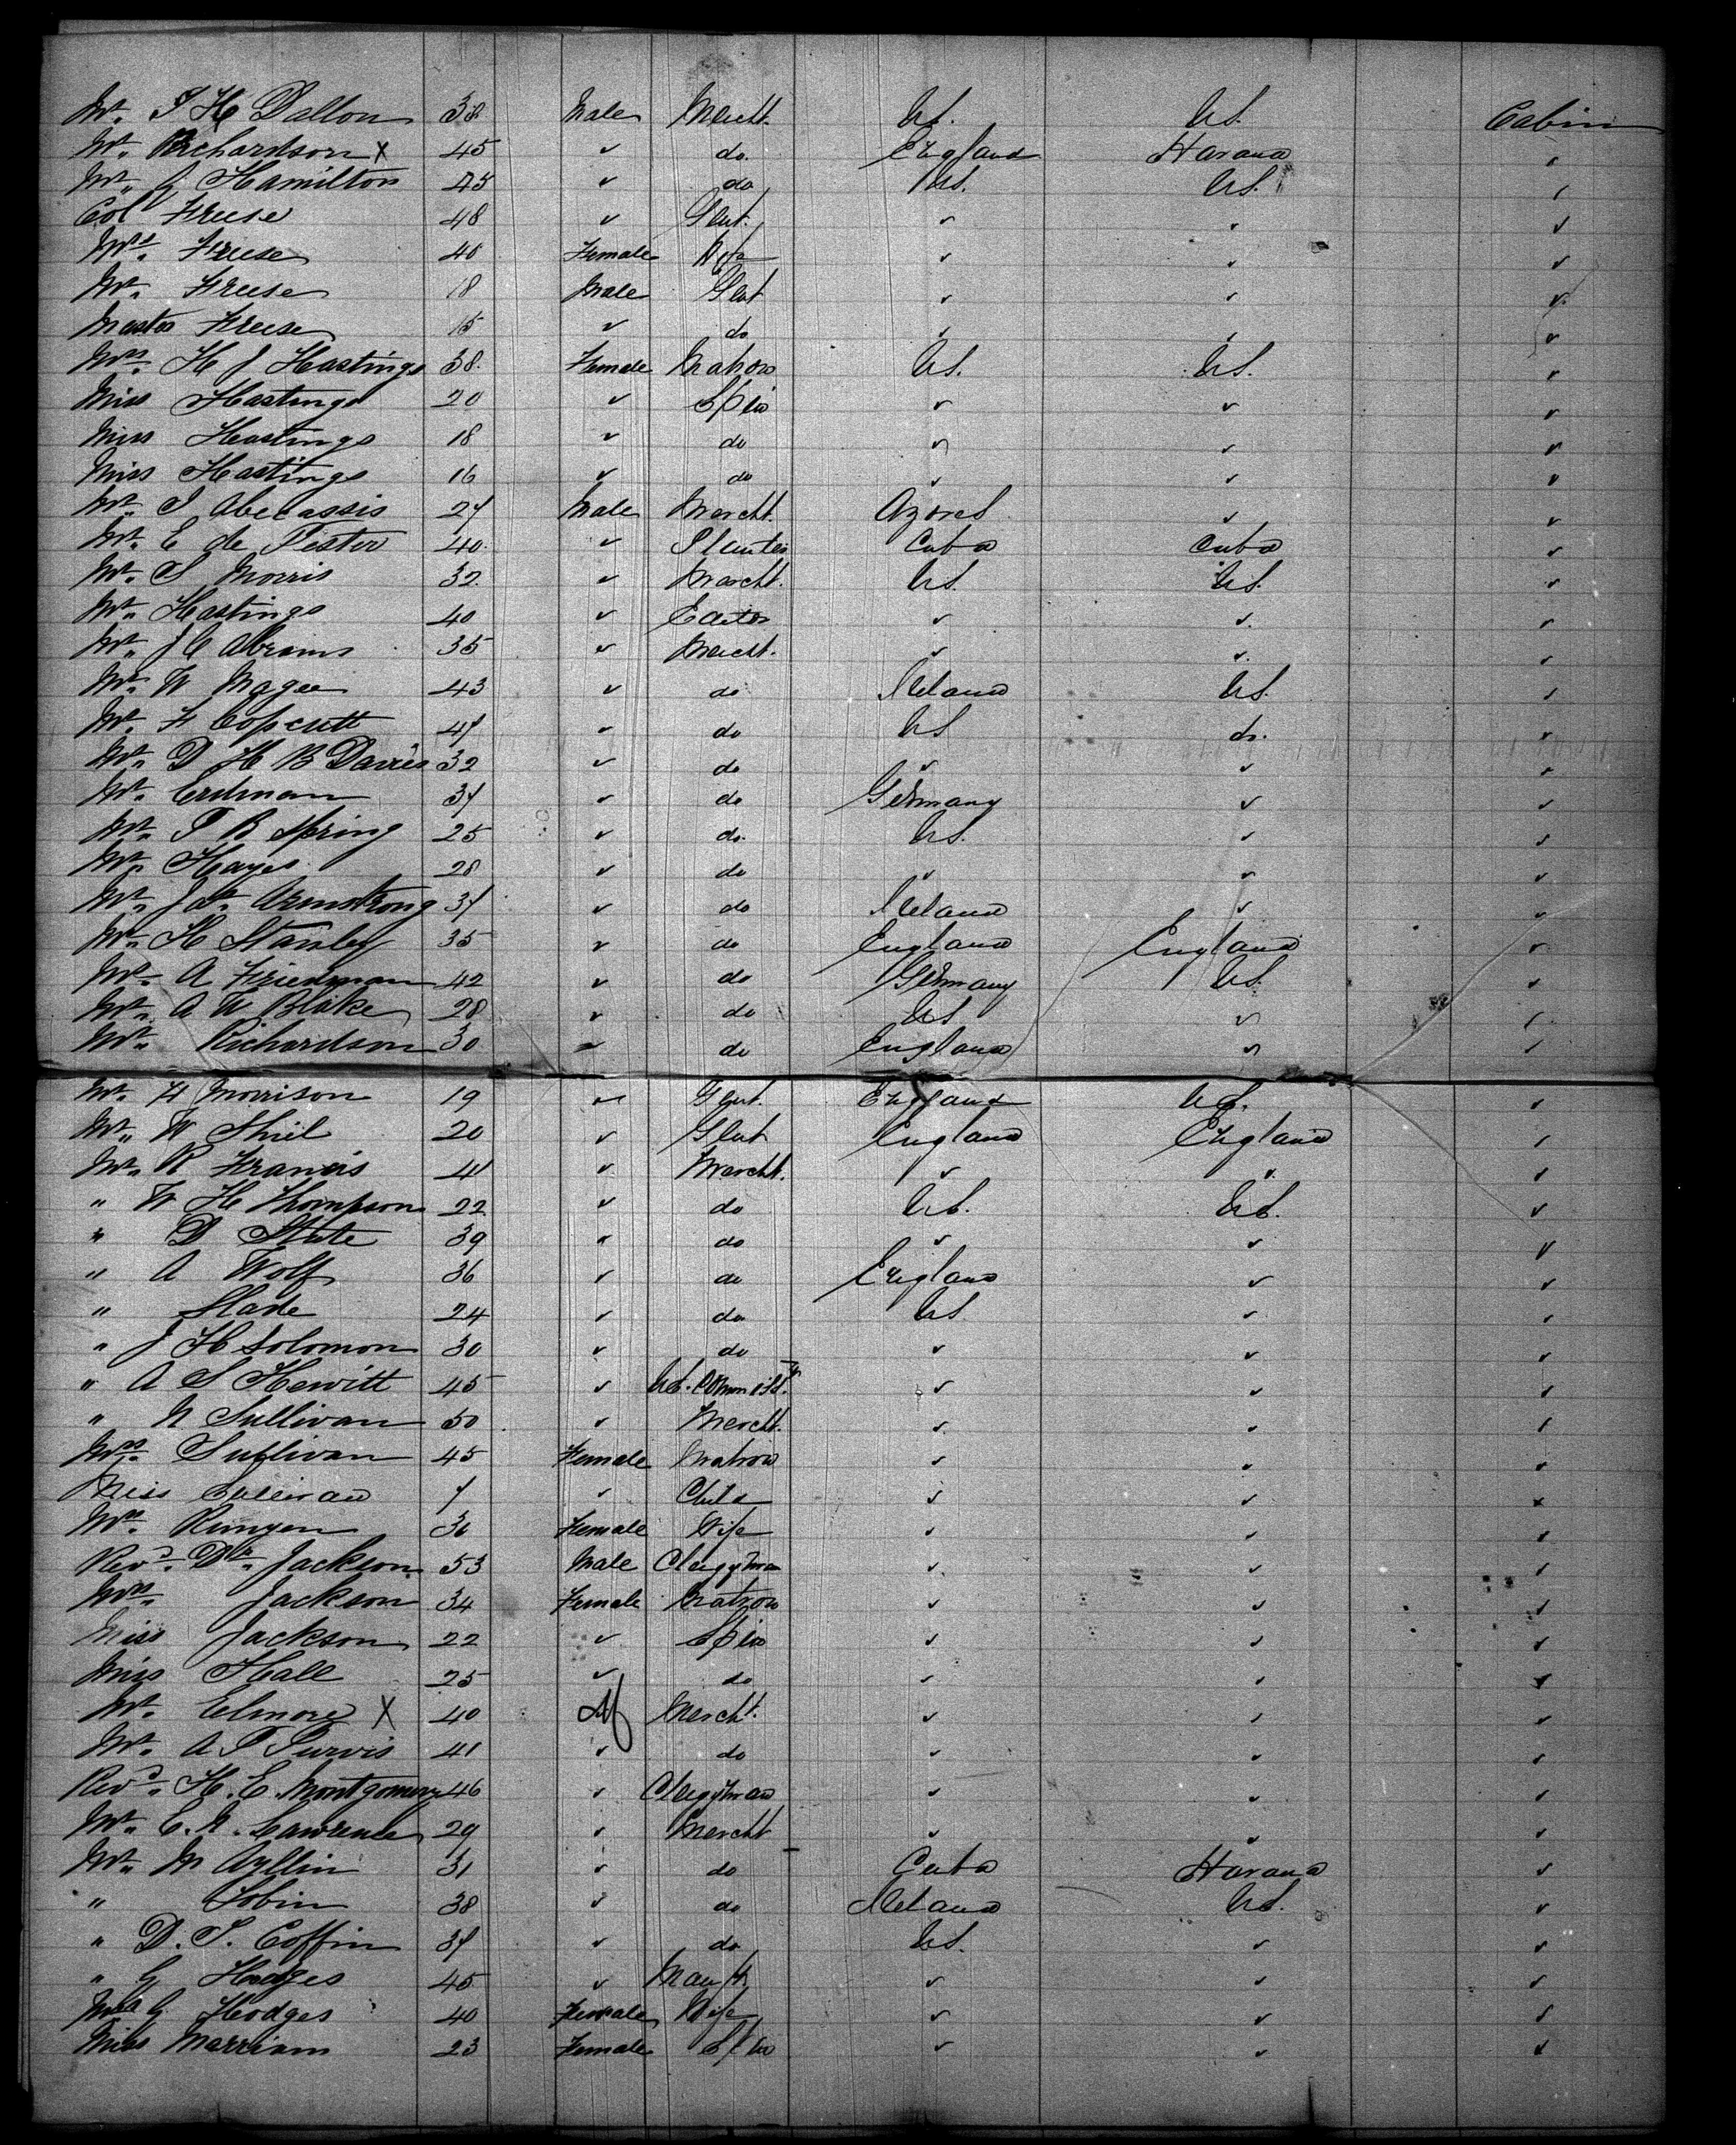 Mr. T H Dalton 38 Male Mercht. US. US. Cabin
Mr. Richardson X 45 " do. England Havana "
Mr. G Hamilton 45 " do US. US. "
Col Freese 48 " Gent. " " "
Mrs. Freese 40 Female Wife " " "
Mr. Freese 18 Male Gent " " "
Master Freese 15 " do " " "
Mrs. H J Hastings 38. Female Matron US. US. "
Miss Hastings 20 " Spin " " "
Miss Hastings 18 " do " " "
Miss Hastings 16 " do " " "
Mr. I Abecassis 27 Male Mercht. Azores " "
Mr. E de 40. " Planter Cuba Cuba "
Mr. S Morris 32 " Mercht. US. US. "
Mr. Hastings 40 " Editor " " "
Mr. J C Abrams 35 " Mercht. " " "
Mr. W Magee 43 " do Ireland US. "
Mr. F Copcutt 47 " do US do. "
Mr. D H B Davies 32 " do " " "
Mr. Erdman 37 " do Germany " "
Mr. T B Spring 25 " do. US. " "
Mr. Hayes 28 " do " " "
Mr. Jas. Armstrong 37 " do Ireland " "
Mr. H Stanley 35 " do England England "
Mr. A Friedman 42 " do Germany US. "
Mr. A W Blake 28 " do US " "
Mr. Richardson 30 " do England " "
Mr. H Morrison 19 " Gent. England US. "
Mr. W Shiel 20 " Gent England England "
Mr. R Francis 41 " Mercht. " " "
" W H Thompson 22 " do US. US. "
" D 39 " do " " "
" A Wolf 36 " do England " "
" Slade 24 " do US. " "
" J H Solomon 30 " do " " "
" A S Hewitt 45 " US. Commissr. " " "
" N Sullivan 50 " Mercht. " " "
Mrs. Sullivan 45 Female Matron " " "
Miss Sullivan 7 " Child " " "
Mrs. 36 Female Wife " " "
Revd. Dr. Jackson 53 Male Clergyman " " "
Mrs. Jackson 34 Female Matron " " "
Miss Jackson 22 " Spin " " "
Miss Hall 25 " do " " "
Mr. Elmore X 40 M Mercht. " " "
Mr. A T Purvis 41 " do " " "
Revd. H. E. Montgomery 46 " Clergyman " " "
Mr. E. N. Lawrence 29 " Mercht " " "
Mr. M 31 " do Cuba Havana "
" Tobin 38 " do Ireland US. "
" D. S. Coffin 37 " do US. " "
" G Hodges 45 " Manfr. " " "
Mrs G Hodges 40 Female Wife " " "
Miss Marriam 23 Female Spin " " "